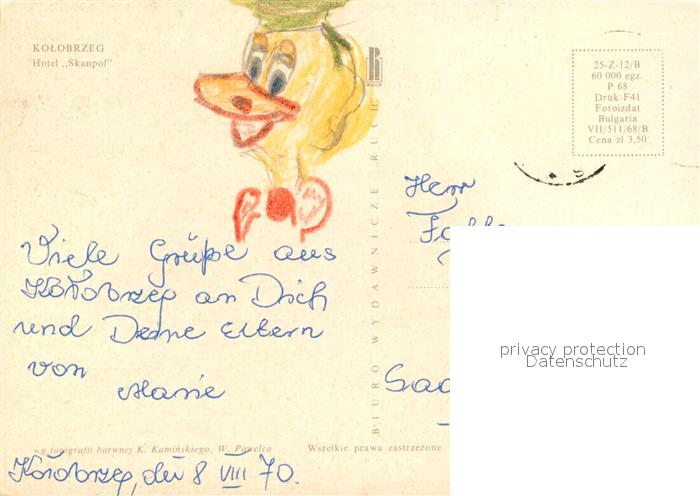 KOŁOBRZEG
Hotel „Skanpol"
RUCH
25-Z-12/B
60 000 egz.
P 68
Druk F41
Fotoizdat
Bulgaria
VII/511/68/B
Cena zł 3,50
BIURO WYDAWNICZE RUCH
Herr
Viele Grüße aus
Kołobrzeg an Dich
und Deine Eltern
von
Marie
privacy protection
Datenschutz
wg fotografii barwnej K. Kamińskiego, W. Pawelca
Wszelkie prawa zastrzeżone
Kołobrzeg, den 8 VIII 70.